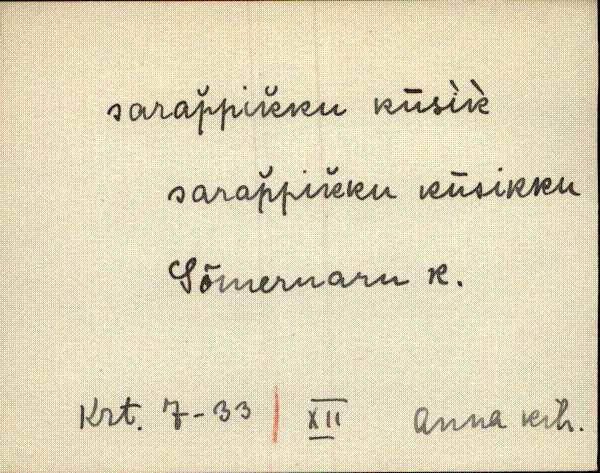 sarap̆pik̆ku kūsìk̀
sarap̆pik̆ku kūsikku
Sõmernaru k.
Krt. 7-33 | XII Anna kih.